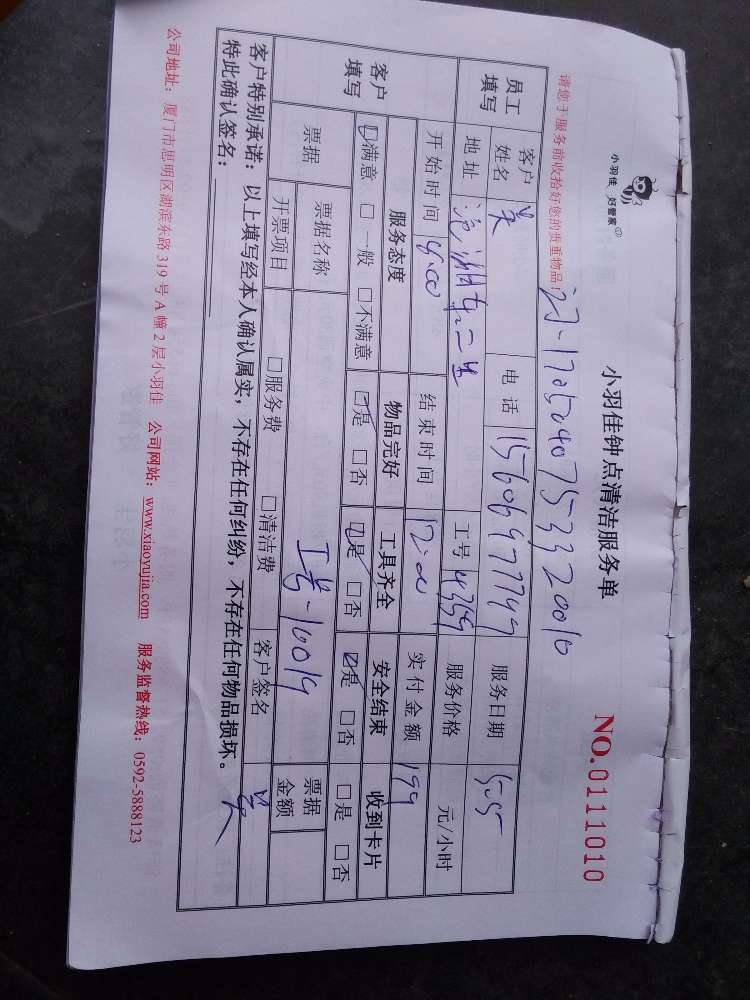 小羽佳 好管家
小羽佳钟点清洁服务单
NO.0111010
请您于服务前收拾好您的贵重物品！
员工填写 客户姓名 吴 电话 服务日期 505
地址 工号 服务价格 元/小时
客户填写 开始时间 结束时间 12:00 实付金额 199
服务态度 物品完好 工具齐全 安全结束 收到卡片
☑满意 □一般 □不满意 ☑是 □否 ☑是 □否 ☑是 □否 □是 □否
票据 票据名称 票据金额
开票项目 □服务费 □清洁费 客户签名 吴
客户特别承诺：以上填写经本人确认属实，不存在任何纠纷，不存在任何物品损坏。
特此确认签名：
公司地址：厦门市思明区湖滨东路 319 号 A 幢 2 层小羽佳 公司网站：www.xiaoyujia.com 服务监督热线：0592-5888123